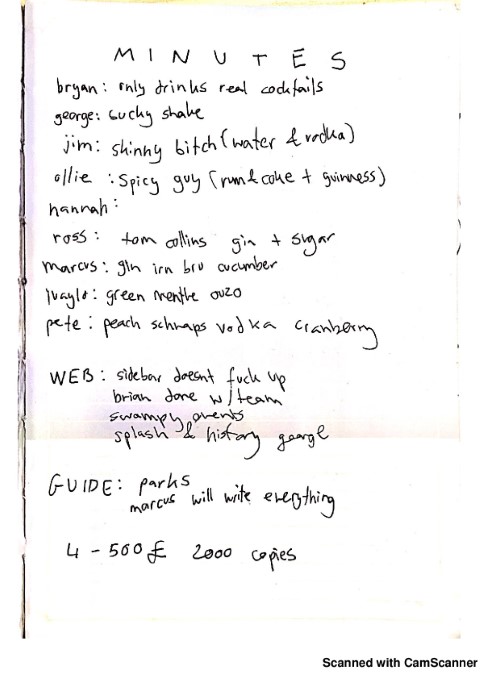 MINUTES
bryan: only drinks real cocktails
george: sucky shake
jim: skinny bitch (water & vodka)
ollie: spicy guy (rum & coke + guinness)
hannah:
ross: tom collins gin + sugar
marcus: gin irn bru cucumber
green menthe ouzo
pete: peach schnaps vodka cranberry
WEB: sidebar doesnt fuck up
brian done w/team
swamply events
splash & history george
GUIDE: parks
marcus will write everything
4-500£ 2000 copies
Scanned with CamScanner